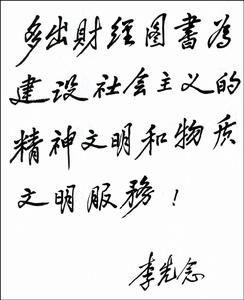 多出財經图書為
建设社会主义的
精神文明和物质
文明服務！
李先念